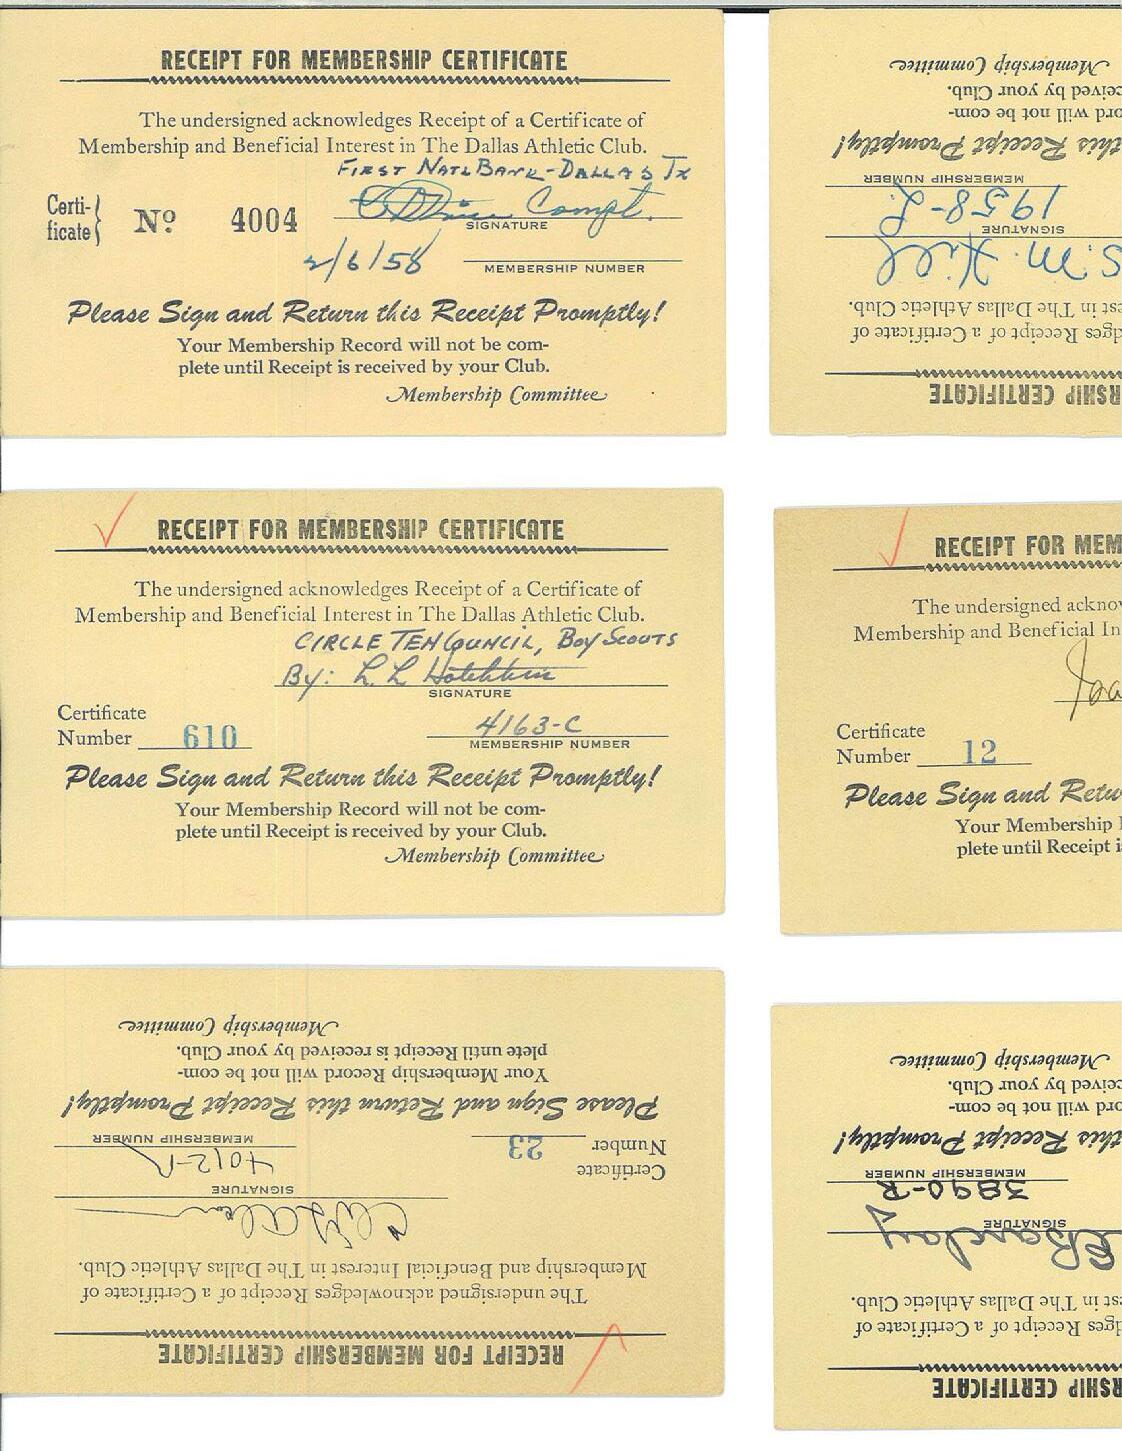 RECEIPT FOR MEMBERSHIP CERTIFICATE
The undersigned acknowledges Receipt of a Certificate of
Membership and Beneficial Interest in The Dallas Athletic Club.
FIRST NATL BANK-DALLAS TX
Compt.
Certi-
ficate
Nº 4004
SIGNATURE
2/6/58
MEMBERSHIP NUMBER
Please Sign and Return this Receipt Promptly!
Your Membership Record will not be com-
plete until Receipt is received by your Club.
Membership Committee
RECEIPT FOR MEMBERSHIP CERTIFICATE
The undersigned acknowledges Receipt of a Certificate of
Membership and Beneficial Interest in The Dallas Athletic Club.
CIRCLE TEN COUNCIL, BOY SCOUTS
By: L. L. Hotchkin
SIGNATURE
Certificate
Number 610
4163-C
MEMBERSHIP NUMBER
Please Sign and Return this Receipt Promptly!
Your Membership Record will not be com-
plete until Receipt is received by your Club.
Membership Committee
RECEIPT FOR MEMBERSHIP CERTIFICATE
The undersigned acknowledges Receipt of a Certificate of
Membership and Beneficial Interest in The Dallas Athletic Club.
SIGNATURE
Certificate
Number 23
4012-R
MEMBERSHIP NUMBER
Please Sign and Return this Receipt Promptly!
Your Membership Record will not be com-
plete until Receipt is received by your Club.
Membership Committee
RSHIP CERTIFICATE
dges Receipt of a Certificate of
est in The Dallas Athletic Club.
S. M. Hill
SIGNATURE
1958-L
MEMBERSHIP NUMBER
this Receipt Promptly!
ord will not be com-
ceived by your Club.
Membership Committee
RECEIPT FOR MEM
The undersigned acknow
Membership and Beneficial In
Certificate
Number 12
Please Sign and Retu
Your Membership
plete until Receipt i
RSHIP CERTIFICATE
dges Receipt of a Certificate of
est in The Dallas Athletic Club.
Barclay
SIGNATURE
3890-R
MEMBERSHIP NUMBER
this Receipt Promptly!
ord will not be com-
ceived by your Club.
Membership Committee